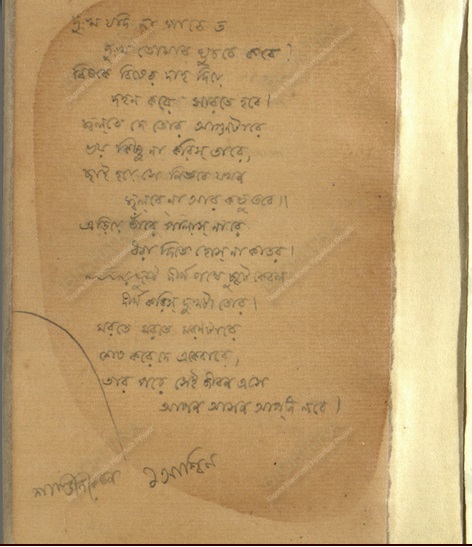 দুঃখ যদি না পাবে ত
দুঃখ তোমার ঘুচবে কবে?
বিষকে বিষের দাহ দিয়ে
দহন করে মারতে হবে।
জ্বলতে দে তোর আগুনটারে
ভয় কিছু না করিস্ তারে,
ছাই হয়ে সে নিভবে যখন
জ্বলবে না আর কভু তবে।।
এড়িয়ে তাঁরে পালাস্ নারে
ধরা দিতে হোস্ না কাতর।
দীর্ঘ পথে ছুটে কেবল
দীর্ঘ করিস্ দুঃখটা তোর।
মরতে মরতে মরণটারে
শেষ করে দে একেবারে,
তার পরে সেই জীবন এসে
আপন আসন আপ্‌নি লবে।
শান্তিনিকেতন ১ আশ্বিন